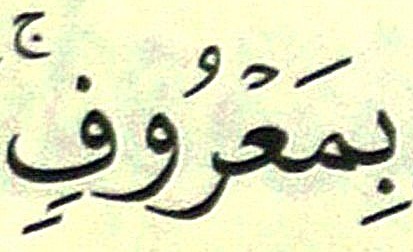 بِمَعْرُوفٍۚ